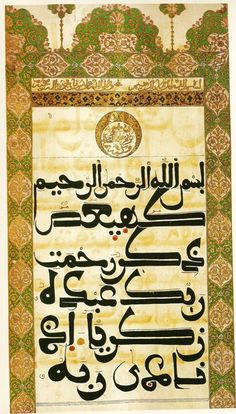 بسم الله الرحمن الرحيم
كهيعص
ذكر رحمت
ربك عبده
زكريا إذ
نادى ربه